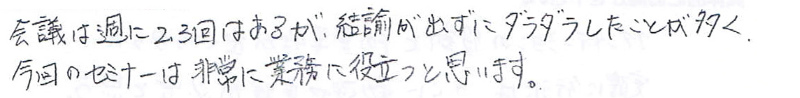 会議は週に2.3回はあるが、結論が出ずにダラダラしたことが多く、
今回のセミナーは非常に業務に役立つと思います。